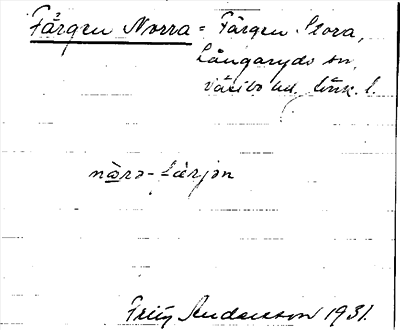 Färgen Norra = Färgen Stora,
Långaryds sn,
Västbo hd, Jönk. l.
nò̱rə-fèrjən
Fritz Andersson 1931.